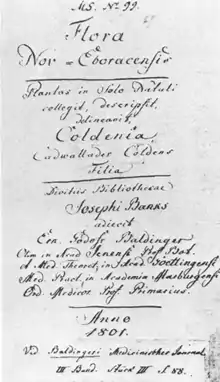 MS. No 99.
Flora
Nov-Eboracensis
Plantas in Solo Natali
collegit, descripsit,
delineavit,
Coldenia
Cadwallader Coldens
Filia
Divitis Bibliothecae
Josephi Banks
adiecit
Ern. Godofr Baldinger
Olim in Acad Jenensi Prof. Bot.
Med. Theoret, in Acad Goettingensi
Med. Pract, in Academia Marburgensi
Ord. Medicor. Prof. Primarius.
Anno
1801.
Vid Baldingers Medicinisches Journal
III Band. Stück III S. 88.